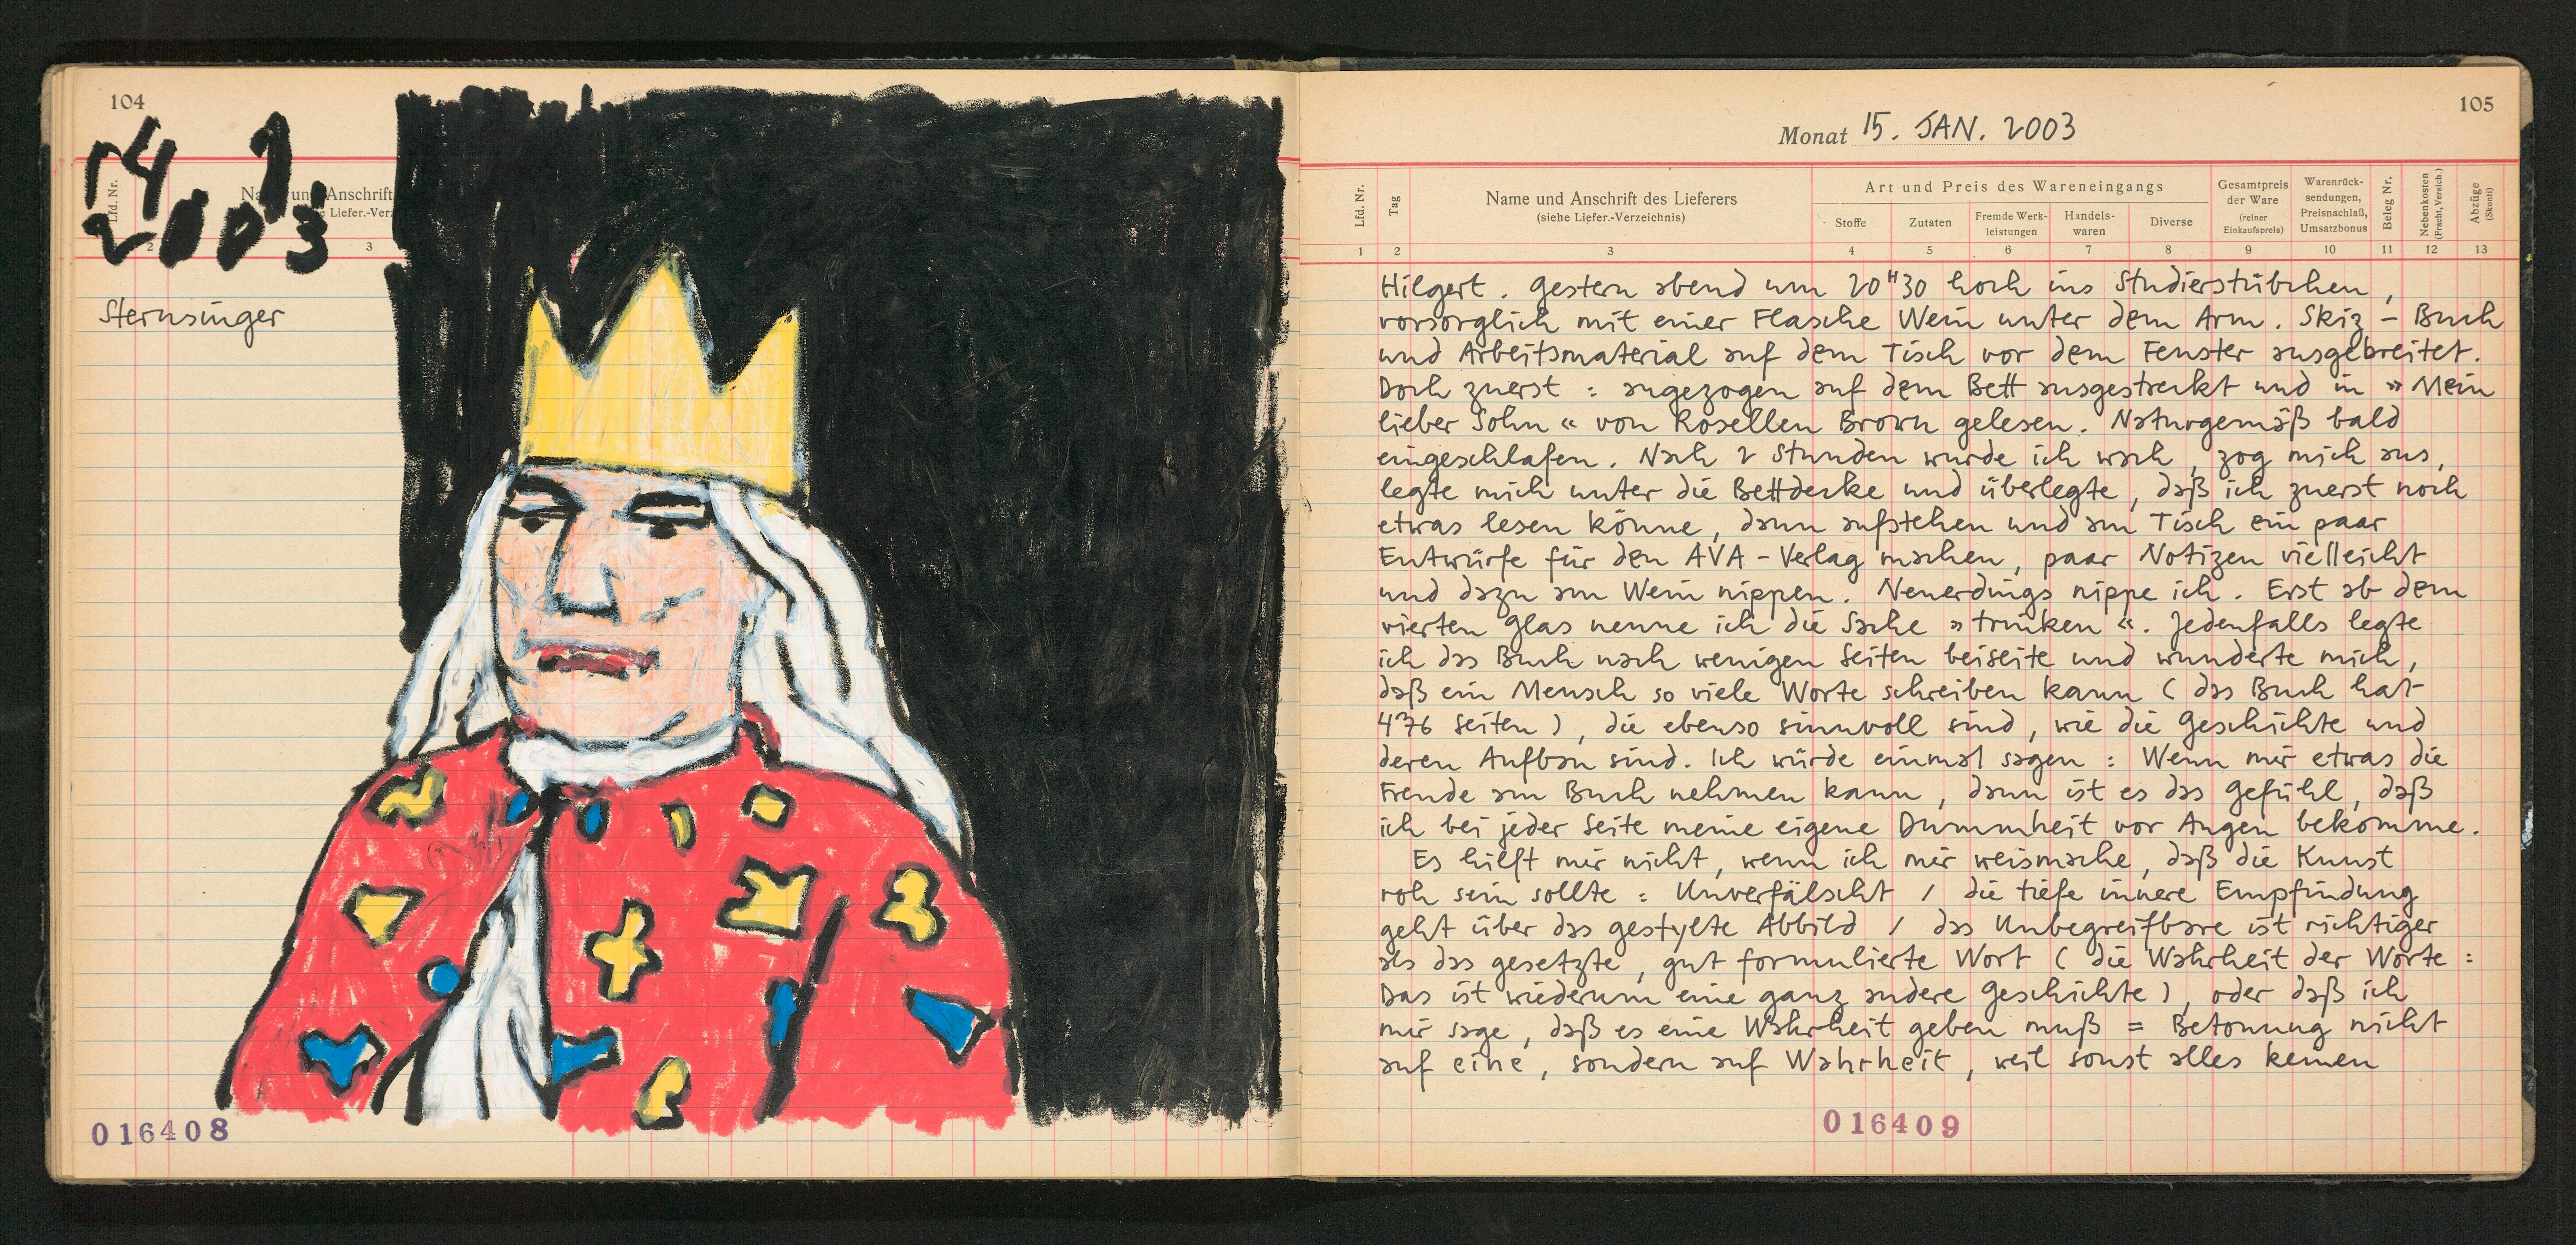 104
14. 1.
2003
Lfd. Nr.
Na und Anschrift
e Liefer.-Verz
2 3
Sternsinger
016408
105
Monat 15. JAN. 2003
Lfd. Nr.
Tag
Name und Anschrift des Lieferers
(siehe Liefer.-Verzeichnis)
Art und Preis des Wareneingangs
Stoffe
Zutaten
Fremde Werk-
leistungen
Handels-
waren
Diverse
Gesamtpreis
der Ware
(reiner
Einkaufspreis)
Warenrück-
sendungen,
Preisnachlaß,
Umsatzbonus
Beleg Nr.
Nebenkosten
(Fracht, Versich.)
Abzüge
(Skonti)
1 2 3 4 5 6 7 8 9 10 11 12 13
Hilgert. Gestern abend um 20H30 hoch ins Studierstübchen,
vorsorglich mit einer Flasche Wein unter dem Arm. Skiz-Buch
und Arbeitsmaterial auf dem Tisch vor dem Fenster ausgebreitet.
Doch zuerst: angezogen auf dem Bett ausgestreckt und in »Mein
lieber Sohn« von Rosellen Brown gelesen. Naturgemäß bald
eingeschlafen. Nach 2 Stunden wurde ich wach, zog mich aus,
legte mich unter die Bettdecke und überlegte, daß ich zuerst noch
etwas lesen könne, dann aufstehen und am Tisch ein paar
Entwürfe für den AVA-Verlag machen, paar Notizen vielleicht
und dazu am Wein nippen. Neuerdings nippe ich. Erst ab dem
vierten Glas nenne ich die Sache »trinken«. Jedenfalls legte
ich das Buch nach wenigen Seiten beiseite und wunderte mich,
daß ein Mensch so viele Worte schreiben kann (das Buch hat
476 Seiten), die ebenso sinnvoll sind, wie die Geschichte und
deren Aufbau sind. Ich würde einmal sagen: Wenn mir etwas die
Freude am Buch nehmen kann, dann ist es das Gefühl, daß
ich bei jeder Seite meine eigene Dummheit vor Augen bekomme.
Es hilft mir nicht, wenn ich mir weismache, daß die Kunst
roh sein sollte: Unverfälscht / die tiefe innere Empfindung
geht über das gestylte Abbild / das Unbegreifbare ist richtiger
als das gesetzte, gut formulierte Wort (die Wahrheit der Worte:
Das ist wiederum eine ganz andere Geschichte), oder daß ich
mir sage, daß es eine Wahrheit geben muß = Betonung nicht
auf eine, sondern auf Wahrheit, weil sonst alles keinen
016409